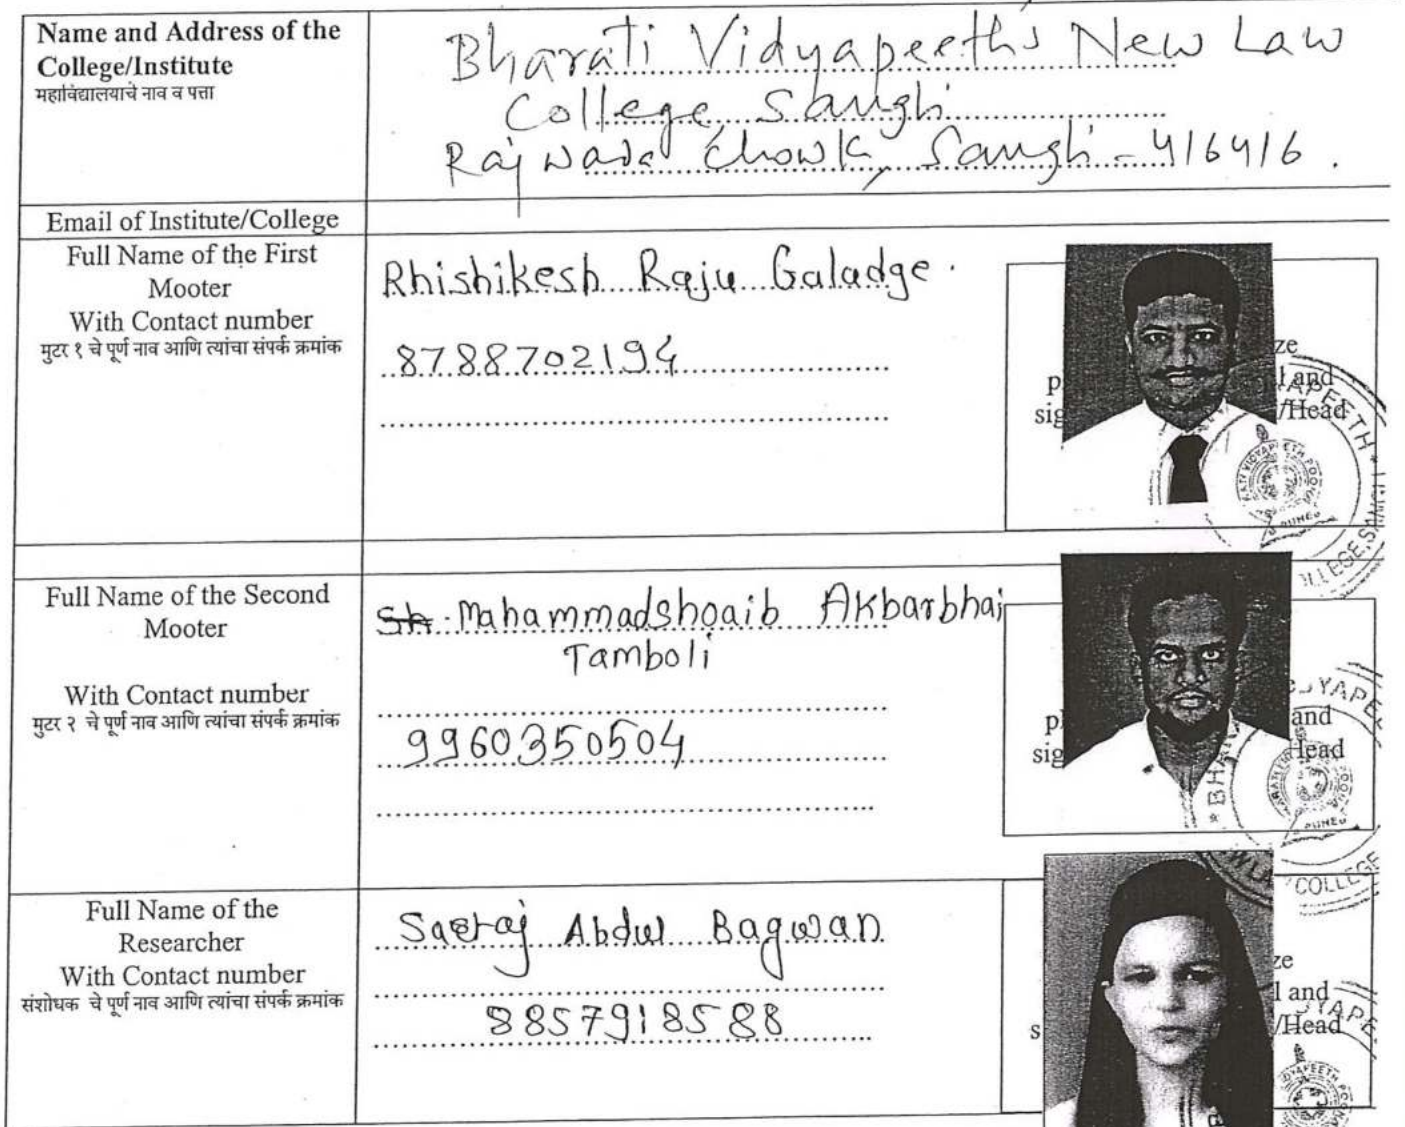 Name and Address of the
College/Institute
महाविद्यालयाचे नाव व पत्ता
Bharati Vidyapeeth's New Law
College Sangli
Rajwada Chowk, Sangli - 416416.
Email of Institute/College
Full Name of the First
Mooter
With Contact number
मुटर १ चे पूर्ण नाव आणि त्यांचा संपर्क क्रमांक
Rhishikesh Raju Galadge.
8788702194
ze
l and
/Head
Full Name of the Second
Mooter
With Contact number
मुटर २ चे पूर्ण नाव आणि त्यांचा संपर्क क्रमांक
Mahammadshoaib Akbarbhai
Tamboli
9960350504
and
Head
Full Name of the
Researcher
With Contact number
संशोधक चे पूर्ण नाव आणि त्यांचा संपर्क क्रमांक
Abdul Bagwan
8857918588
ze
l and
/Head